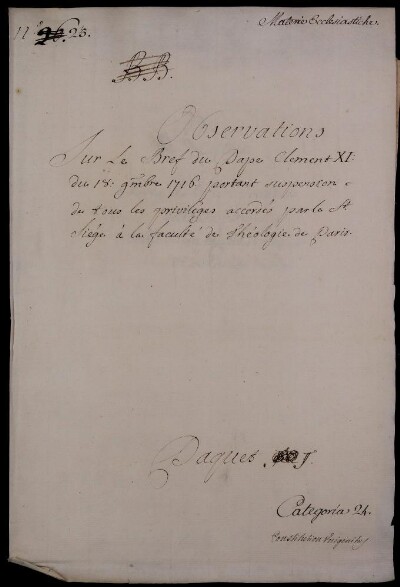 N.° 26. 23.
Materie Ecclesiastiche
B B.
Observations
Sur Le Bref du Pape Clement XI.
du 18. 9mbre 1716. portant suspension
de tous les privilèges accordés par le St.
Siége à la faculté de Théologie de Paris.
Paquet J.
Categoria 24.
Constitution Unigenitus